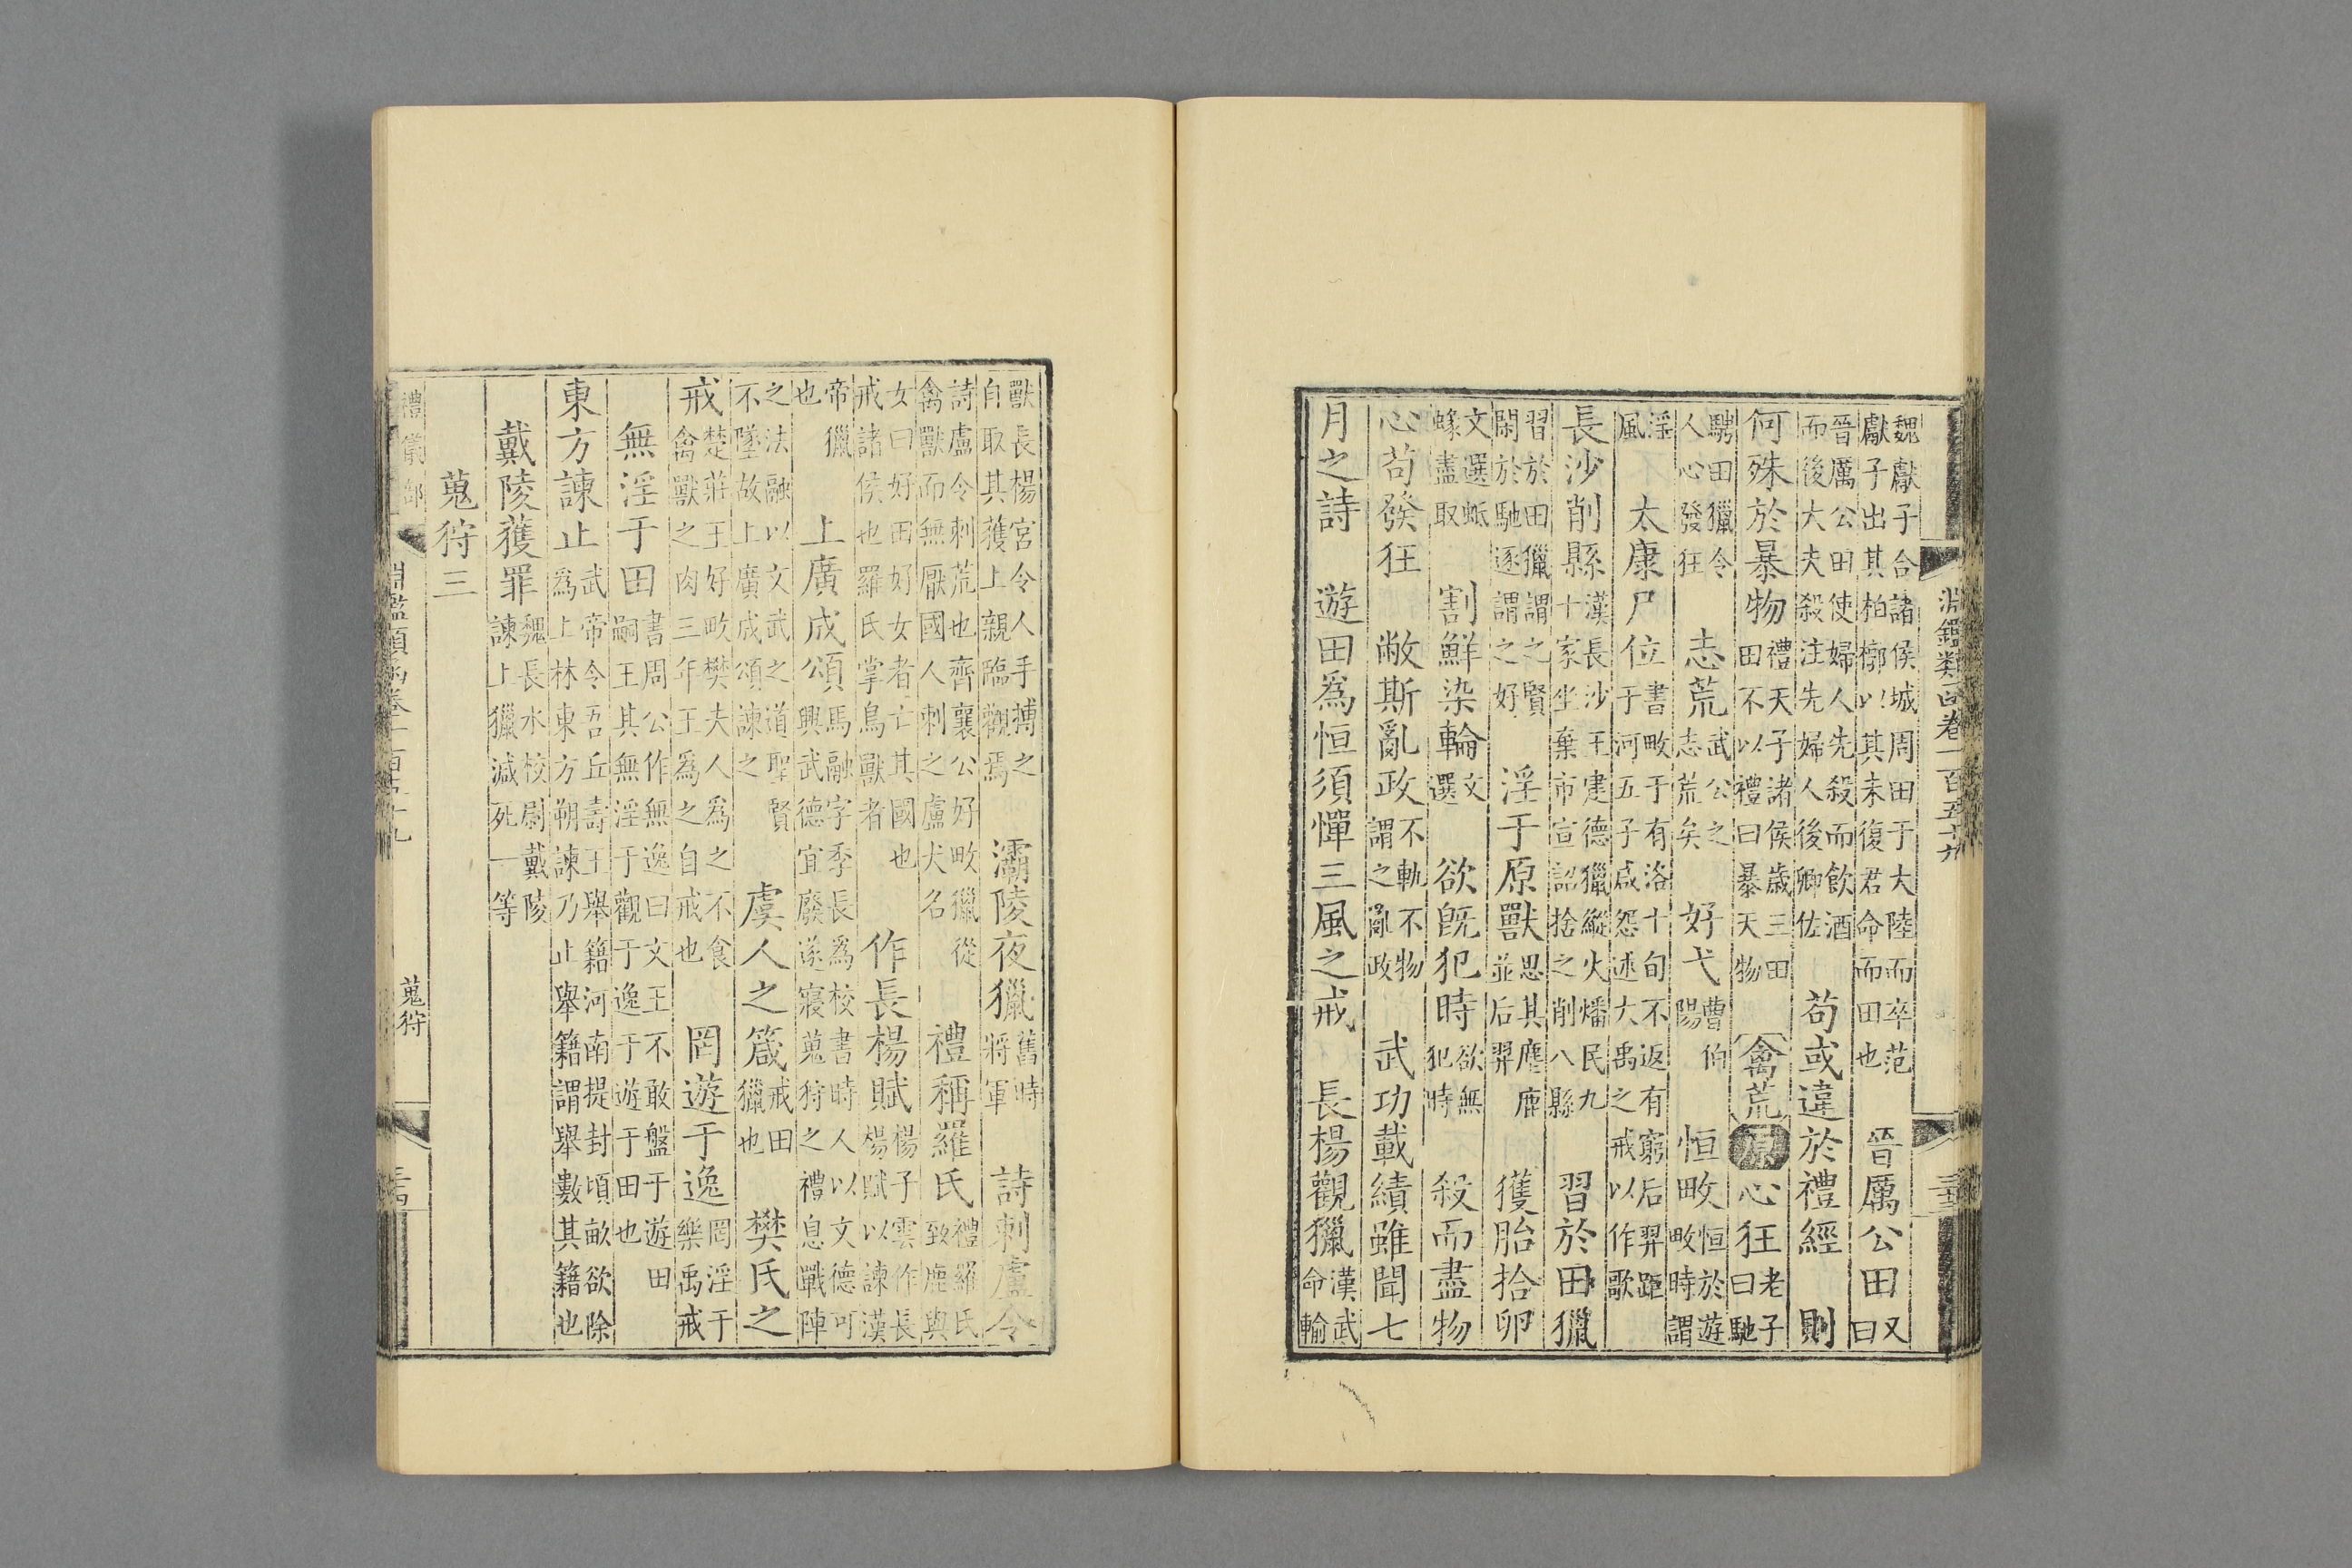 淵鑑類函卷一百五十九
魏獻子合諸侯城周田于大陸而卒范獻子出其柏槨以其未復君命而田也　晉厲公田又曰
晉厲公田使婦人先殺而飲酒而後大夫殺注先婦人後卿佐　苟或違於禮經　則
何殊於暴物禮天子諸侯歲三田田不以禮曰暴天物　禽荒　原　心狂老子曰馳
騁田獵令人心發狂　志荒武公之志荒矣　好弋曹伯陽　恒畋恒於遊畋時謂
淫風　太康尸位書畋于有洛十旬不返有窮后羿距于河五子咸怨述大禹之戒以作歌
長沙削縣漢長沙王建德獵縱火燔民九十家坐棄市宣詔捨之削八縣　習於田獵
習於田獵謂之賢閑於馳逐謂之好　淫于原獸思其麀鹿並后羿　獲胎拾卵
文選蚳蝝盡取　割鮮染輪文選　欲既犯時欲無犯時　殺而盡物
心苟發狂　敝斯亂政不軌不物謂之亂政　武功載績雖聞七
月之詩　遊田爲恒須憚三風之戒　長楊觀獵漢武命輸
獸長楊宮令人手搏之自取其獲上親臨觀焉　灞陵夜獵舊時將軍　詩刺盧令
詩盧令刺荒也齊襄公好畋獵從禽獸而無厭國人刺之盧犬名　禮稱羅氏禮羅氏致鹿與
女曰好田好女者亡其國也戒諸侯也羅氏掌鳥獸者　作長楊賦楊子雲作長楊賦以諫漢
帝獵也　上廣成頌馬融字季長爲校書時人以文德可興武德宜廢遂寢蒐狩之禮息戰陣
之法融以文武之道聖賢不墜故上廣成頌諫之　虞人之箴戒田獵也　樊氏之
戒楚莊王好畋樊夫人爲之不食禽獸之肉三年王爲之自戒也　罔遊于逸罔淫于樂禹戒
無淫于田書周公作無逸曰文王不敢盤于遊田嗣王其無淫于觀于逸于遊于田也
東方諫止武帝令吾丘壽王舉籍河南提封頃畝欲除爲上林東方朔諫乃止舉籍謂舉數其籍也
戴陵獲罪魏長水校尉戴陵諫上獵減死一等
蒐狩三
禮儀部　淵鑑類函卷一百五十九　蒐狩